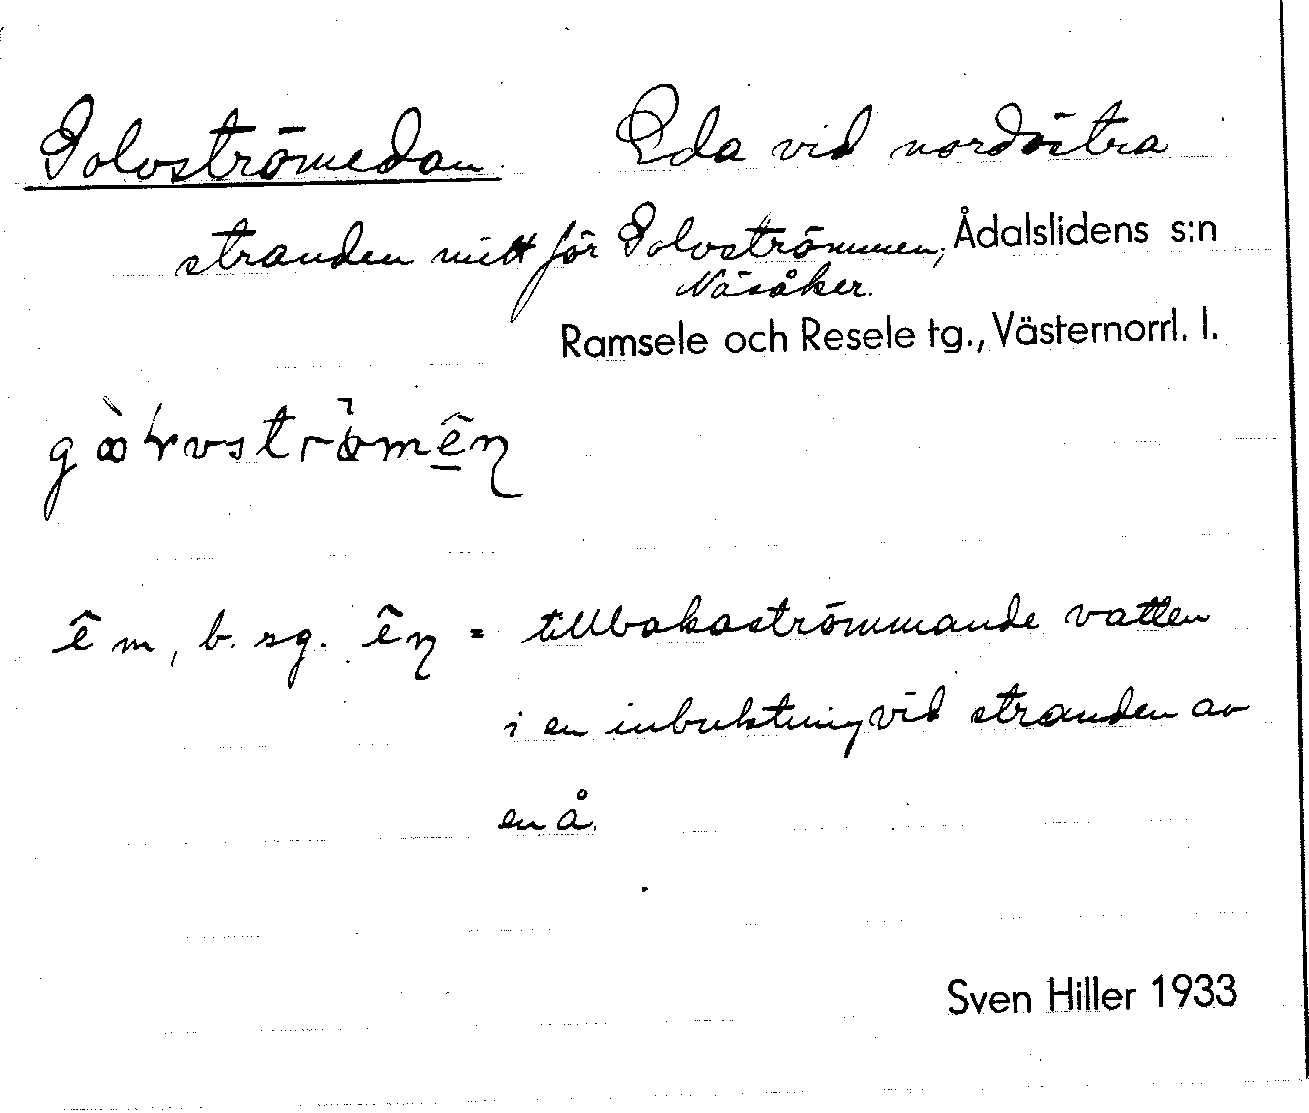 Golvströmedan. Eda vid nordöstra
stranden mitt för Golvströmmen, Ådalslidens s:n
Näsåker.
Ramsele och Resele tg., Västernorrl. l.
ê m, b. sg. êɳ = tillbakaströmmande vatten
i en inbuktning vid stranden av
en å.
Sven Hiller 1933